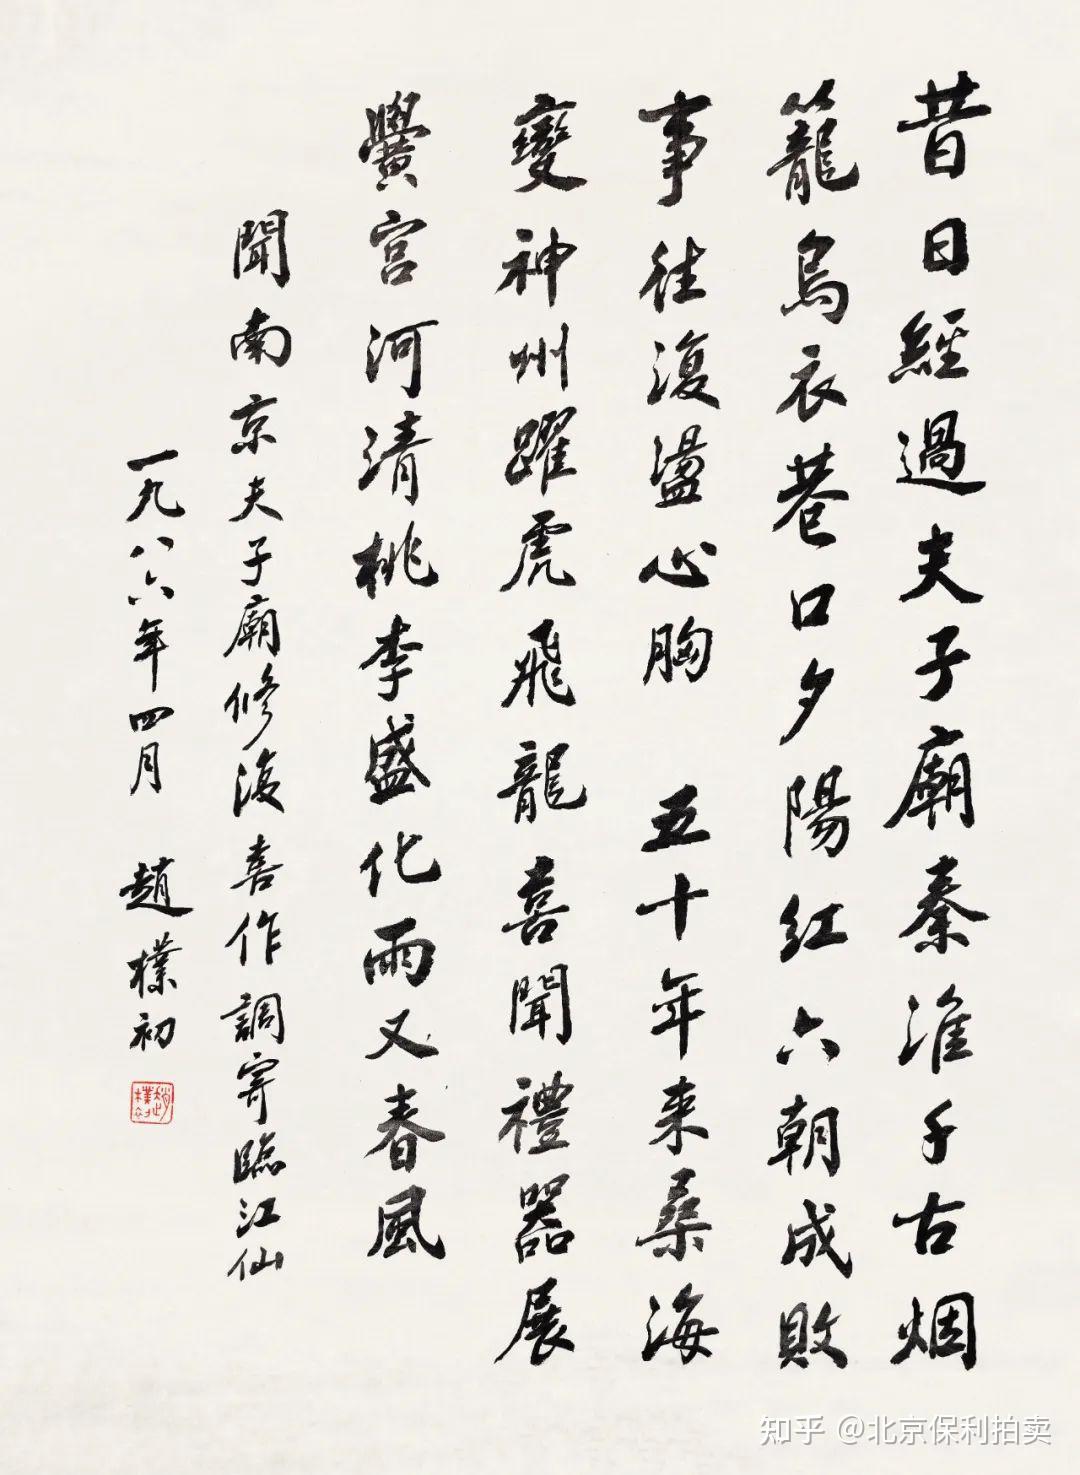 昔日經過夫子廟秦淮千古烟
籠烏衣巷口夕陽紅六朝成敗
事往復盪心胸 五十年來桑海
變神州躍虎飛龍喜聞禮器展
黌宮河清桃李盛化雨又春風
聞南京夫子廟修復喜作調寄臨江仙
一九八六年四月 趙樸初
趙樸初
知乎 @北京保利拍卖